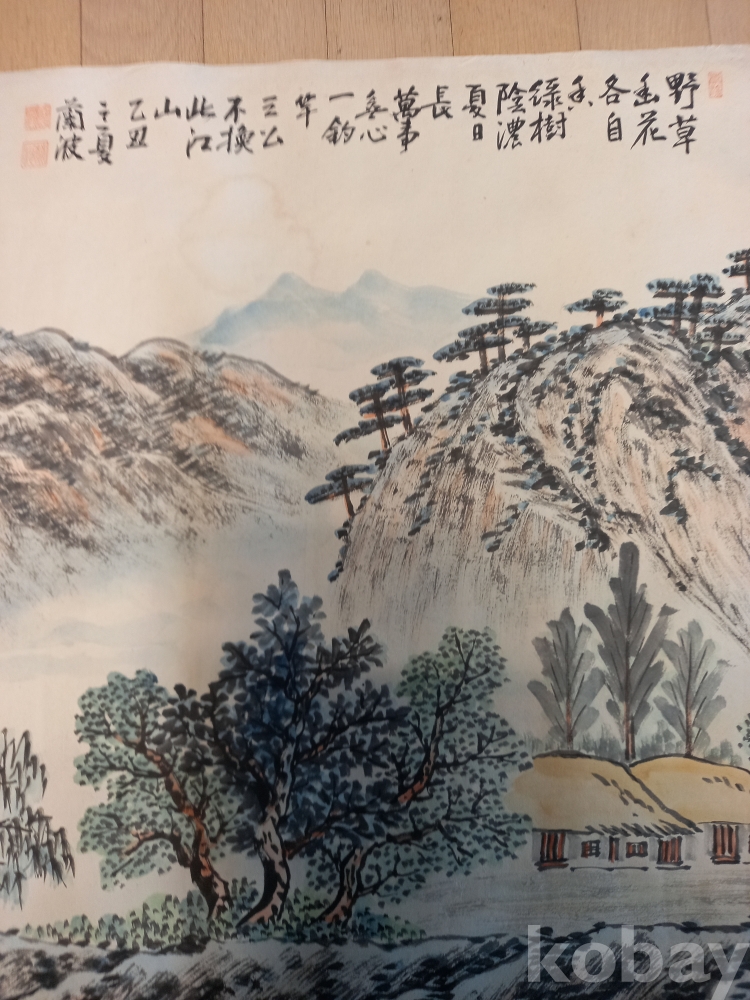 野草
幽花
各自
香
綠樹
陰濃
夏日
長
萬事
無心
一釣
竿
三公
不換
此江
山
乙丑
之夏
蘭波
kobay